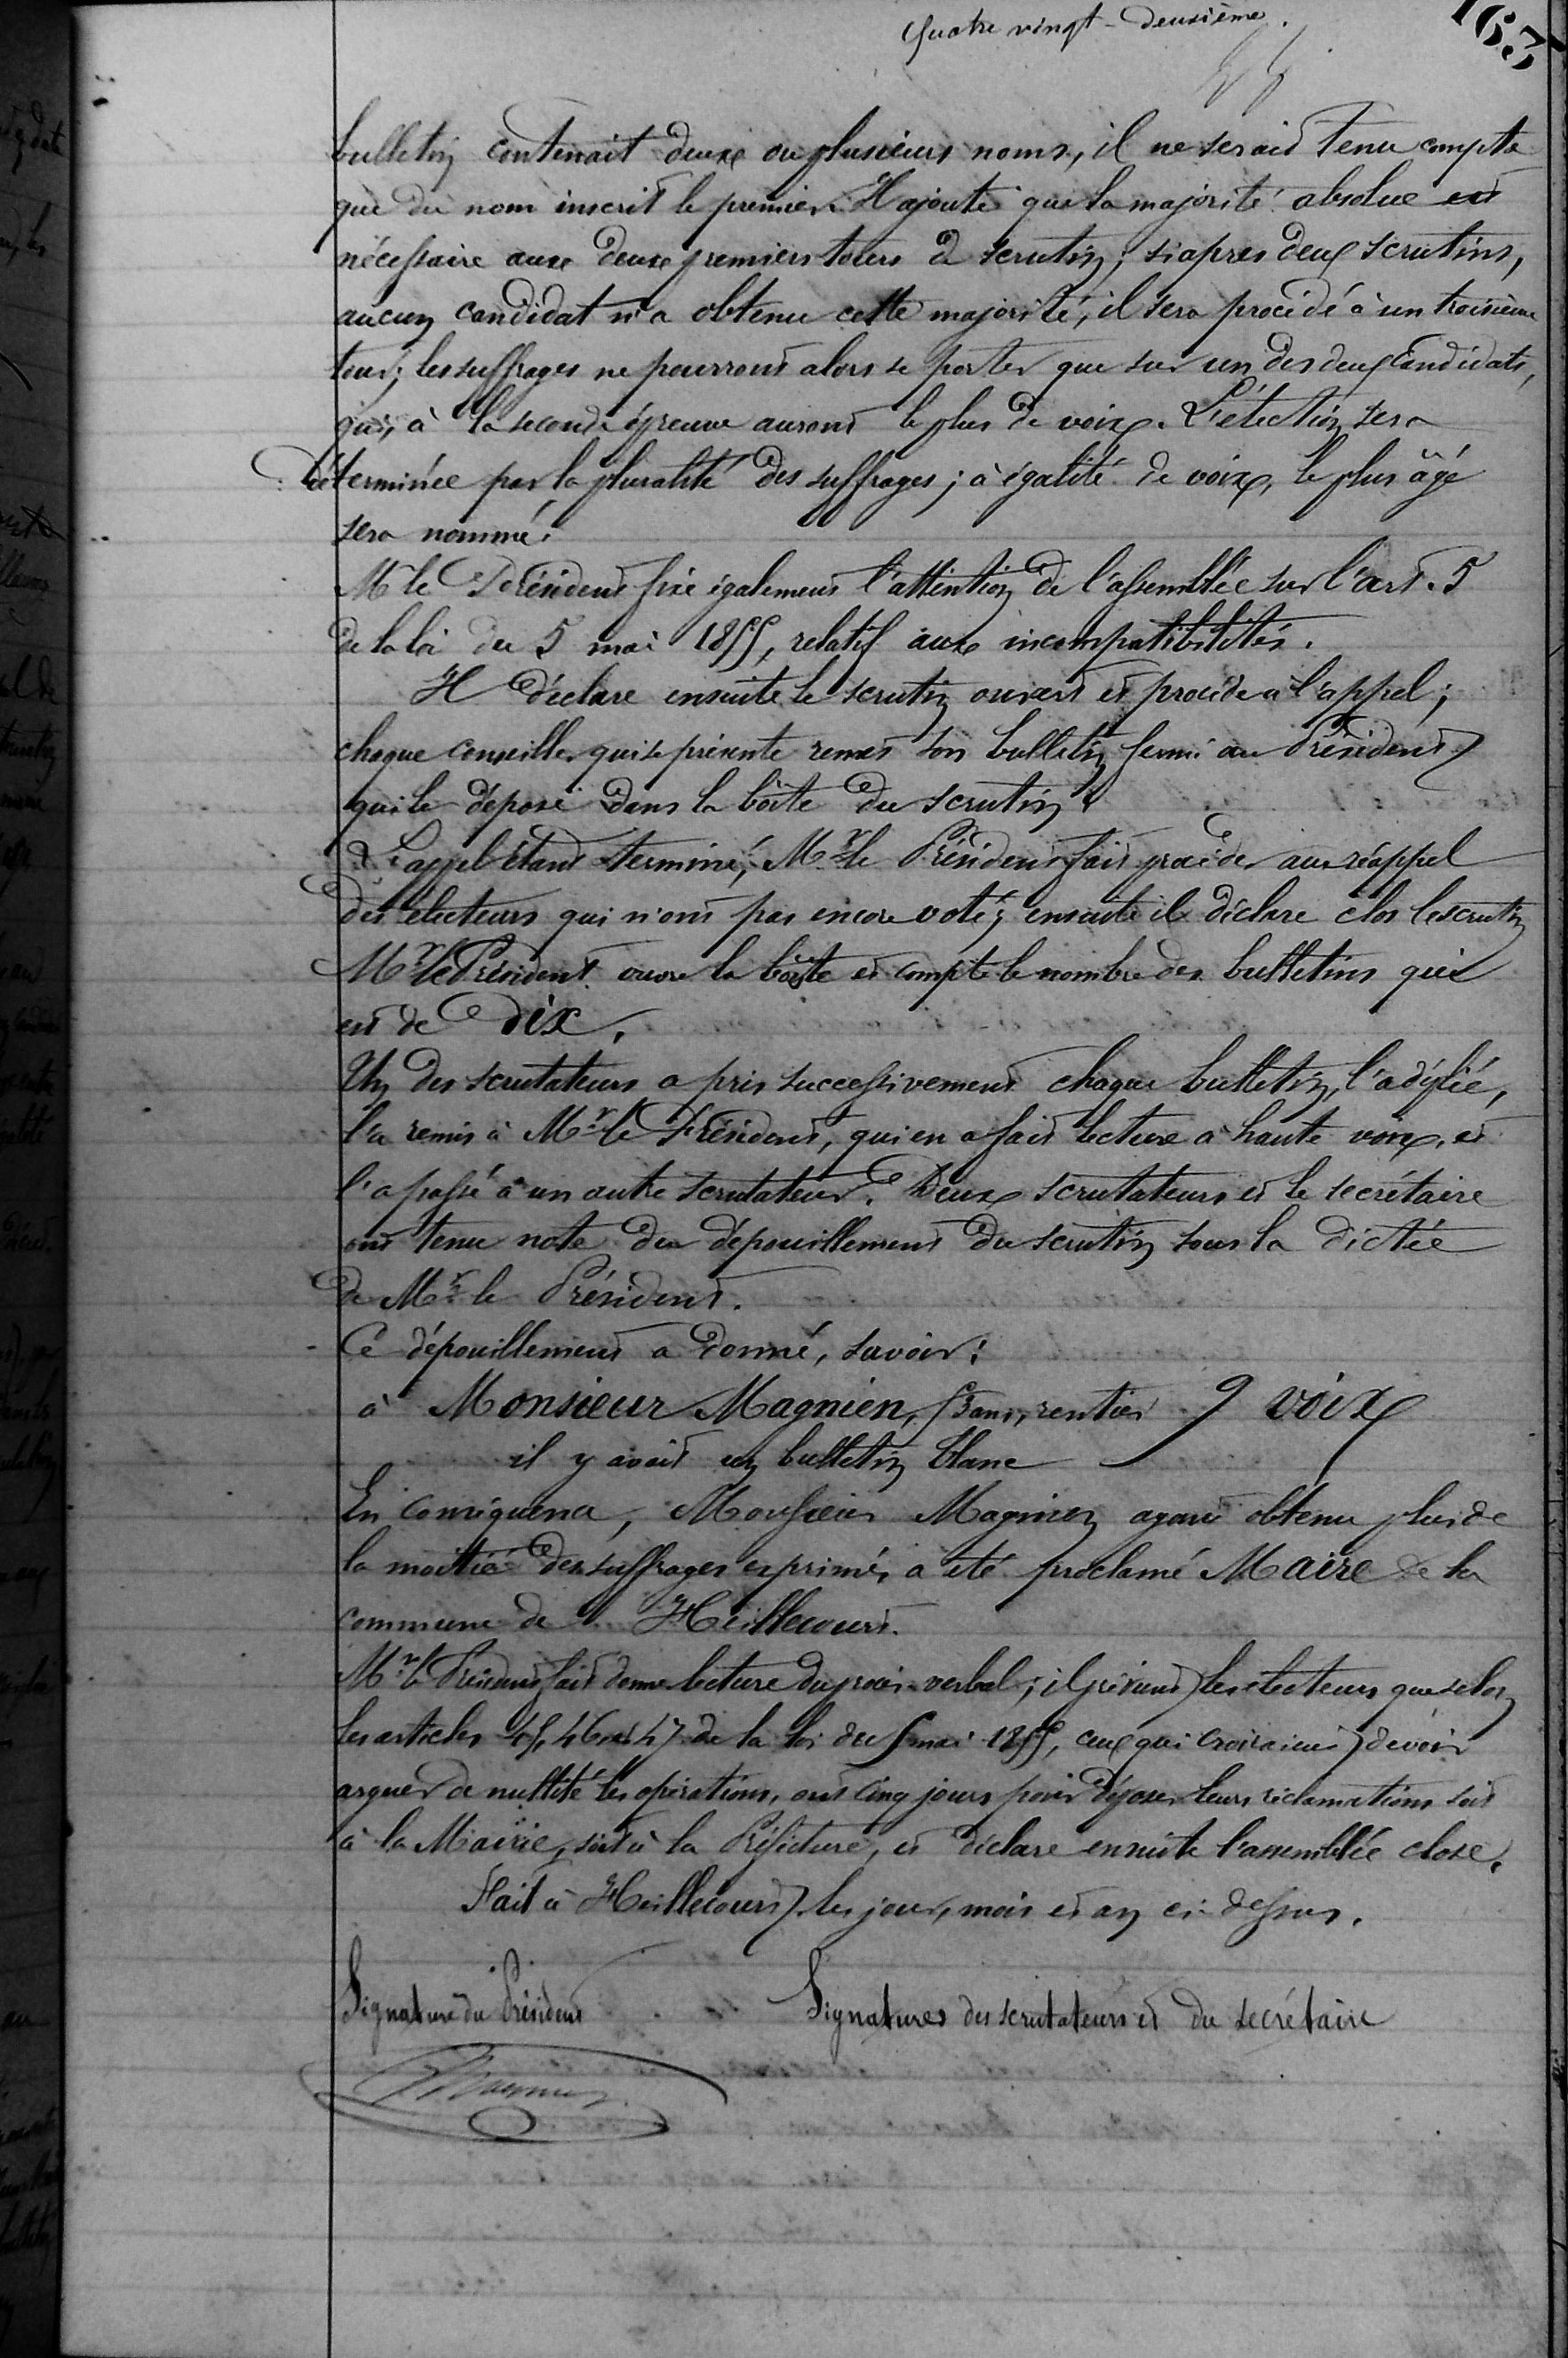 quatre vingt-deuxième.
163
bulletin contenait deux ou plusieurs noms, il ne serait tenu compte
que du nom inscrit le premier. Il ajoute que la majorité absolue est
nécessaire aux deux premiers tours de scrutin; si après deux scrutins,
aucun candidat n'a obtenu cette majorité, il sera procédé à un troisième
tour; les suffrages ne pourront alors se porter que sur un des deux candidats,
qui, à la seconde épreuve auront le plus de voix. L'élection sera
déterminée par la pluralité des suffrages; à égalité de voix, le plus âgé
sera nommé.
Mr le Président fixe également l'attention de l'assemblée sur l'art. 5
de la loi du 5 mai 1855, relatif aux incompatibilités.
Il déclare ensuite le scrutin ouvert et procède à l'appel;
chaque conseiller qui se présente remet son bulletin fermé au Président
qui le dépose dans la boîte du scrutin.
L'appel étant terminé, Mr le Président fait procéder au réappel
des électeurs qui n'ont pas encore voté; ensuite il déclare clos le scrutin
Mr le Président ouvre la boîte et compte le nombre des bulletins qui
est de dix.
Un des scrutateurs a pris successivement chaque bulletin, l'a déplié,
l'a remis à Mr le Président, qui en a fait lecture à haute voix, et
l'a passé à un autre scrutateur. Deux scrutateurs et le secrétaire
ont tenu note du dépouillement du scrutin sous la dictée
de Mr le Président.
Ce dépouillement a donné, savoir:
à Monsieur Magnien, rentier 9 voix
il y avait un bulletin blanc
En conséquence, Monsieur Magnien ayant obtenu plus de
la moitié des suffrages exprimés a été proclamé Maire de la
commune de Heillecourt.
Mr le Président fait donner lecture du procès-verbal; il prévient les électeurs que selon
les articles 45, 46 et 47 de la loi du 5 mai 1855, ceux qui croiraient devoir
arguer de nullité les opérations, ont cinq jours pour déposer leurs réclamations soit
à la Mairie, soit à la Préfecture, et déclare ensuite l'assemblée close.
Fait à Heillecourt, les jour, mois et an ci-dessus.
Signature du Président
Signatures des scrutateurs et du secrétaire
Magnien